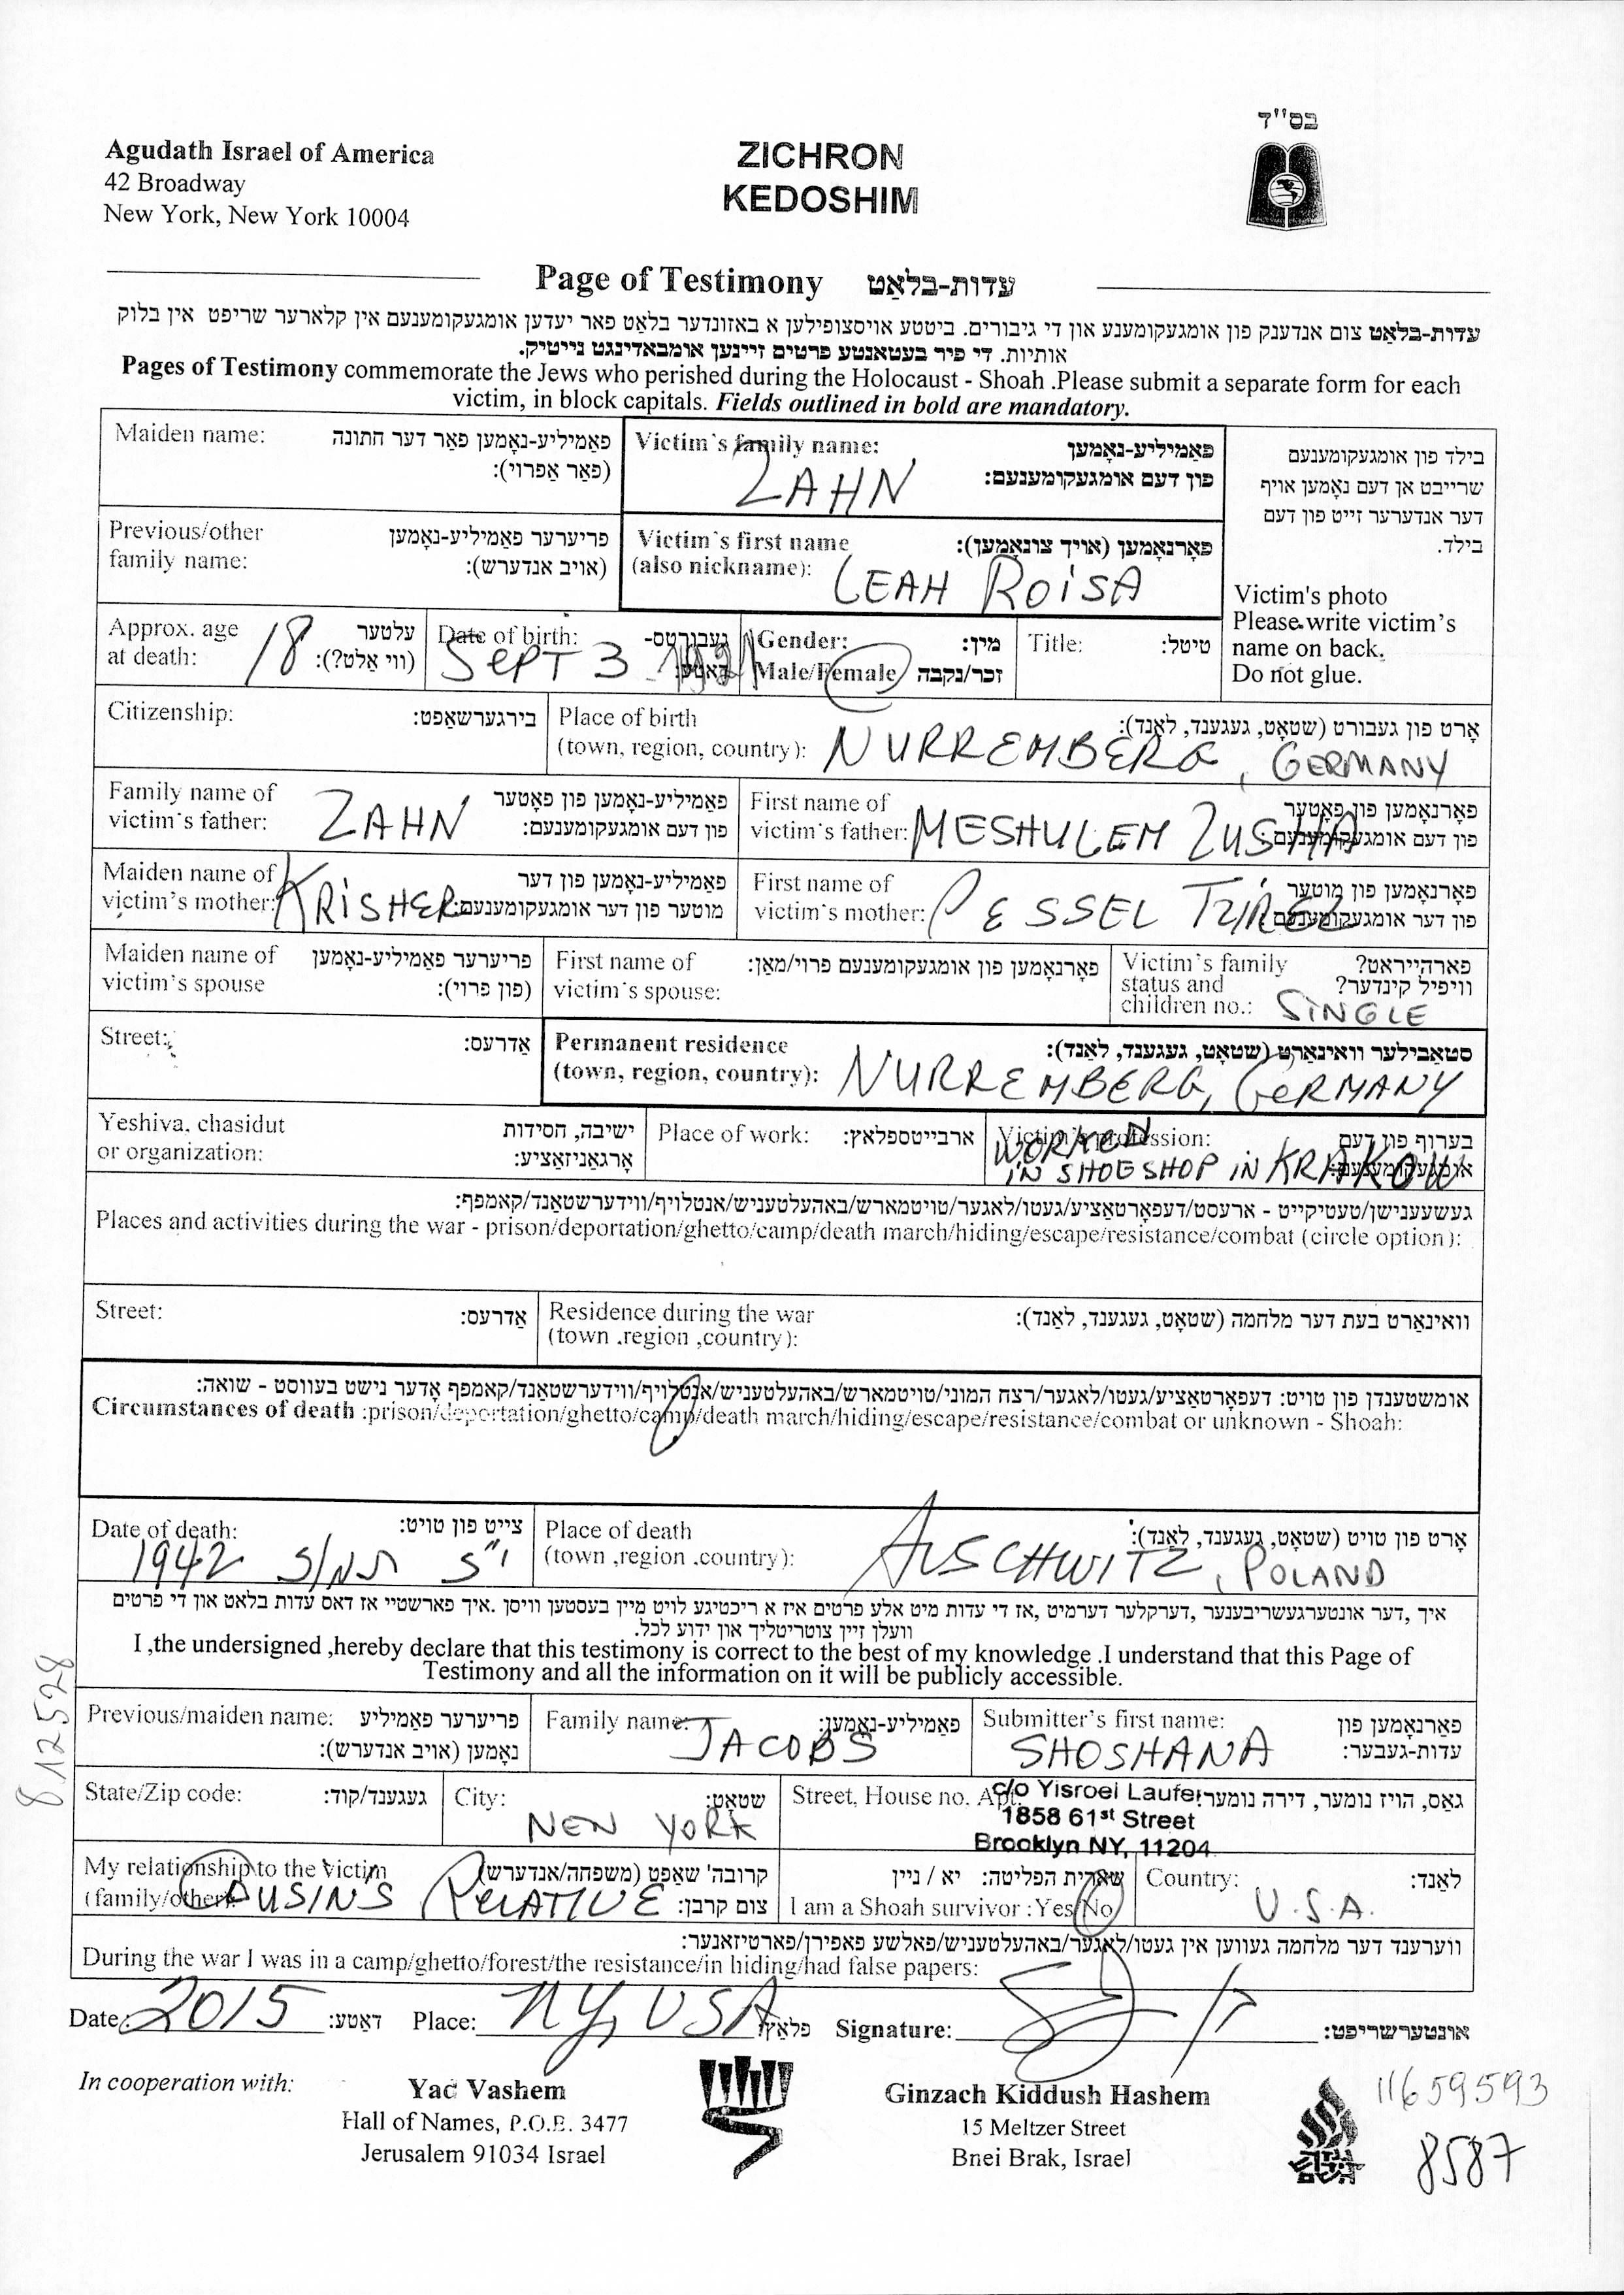 בס''ד
Agudath Israel of America
42 Broadway
New York, New York 10004
ZICHRON
KEDOSHIM
Page of Testimony עדות-בלאַט
עדות-בלאַט צום אנדענק פון אומגעקומענע און די גיבורים. ביטטע אויסצופילען א באזונדער בלאט פאר יעדען אומגעקומענעם אין קלארער שריפט אין בלוק
אותיות. די פיר בעטאנטע פרטים זיינען אומבאדינגט נייטיק.
Pages of Testimony commemorate the Jews who perished during the Holocaust - Shoah .Please submit a separate form for each
victim, in block capitals. Fields outlined in bold are mandatory.
Maiden name: פאַמיליע-נאָמען פאַר דער חתונה
(פאַר אַפרוי):
Victim's family name: פאַמיליע-נאָמען
פון דעם אומגעקומענעם:
ZAHN
בילד פון אומגעקומענעם
שרייבט אן דעם נאָמען אויף
דער אנדערער זייט פון דעם
בילד.
Victim's photo
Please write victim's
name on back.
Do not glue.
Previous/other פריערער פאַמיליע-נאָמען
family name: (אויב אנדערש):
Victim's first name פאָרנאָמען (אויך צונאָמען):
(also nickname): LEAH ROiSA
Approx. age עלטער
at death: 18 (ווי אַלט?):
Date of birth: געבורטס-
SEPT 3 1921 דאַטע:
Gender: מין:
Male/Female זכר/נקבה
Title: טיטל:
Citizenship: בירגערשאַפט:
Place of birth אָרט פון געבורט (שטאָט, געגענד, לאַנד):
(town, region, country): NURREMBERG, GERMANY
Family name of פאַמיליע-נאָמען פון פאָטער
victim's father: ZAHN פון דעם אומגעקומענעם:
First name of פאָרנאָמען פון פאָטער
victim's father: MESHULEM ZUSHA פון דעם אומגעקומענעם:
Maiden name of פאַמיליע-נאָמען פון דער
victim's mother: KRiSHER מוטער פון דער אומגעקומענעם:
First name of פאָרנאָמען פון מוטער
victim's mother: PESSEL TZIREL פון דער אומגעקומענעם:
Maiden name of פריערער פאַמיליע-נאָמען
victim's spouse (פון פרוי):
First name of פאָרנאָמען פון אומגעקומענעם פרוי/מאַן:
victim's spouse:
Victim's family פארהייראט?
status and וויפיל קינדער?
children no.: SiNGLE
Street: אַדרעס:
Permanent residence סטאַבילער וואוינאָרט (שטאָט, געגענד, לאַנד):
(town, region, country): NURREMBERG, GERMANY
Yeshiva, chasidut ישיבה, חסידות
or organization: אָרגאַניזאַציע:
Place of work: ארבייטספלאץ:
Victim's profession: בערוף פון דעם
אומגעקומענעם:
WORKED
iN SHOE SHOP iN KRAKOW
געשעענישן/טעטיקייט - ארעסט/דעפאָרטאַציע/געטו/לאגער/טויטמארש/באהעלטעניש/אנטלויף/ווידערשטאַנד/קאמפף:
Places and activities during the war - prison/deportation/ghetto/camp/death march/hiding/escape/resistance/combat (circle option):
Street: אַדרעס:
Residence during the war וואוינאָרט בעת דער מלחמה (שטאָט, געגענד, לאַנד):
(town .region ,country):
אומשטענדן פון טויט: דעפאָרטאַציע/געטו/לאגער/רצח המוני/טויטמארש/באהעלטעניש/אַנטלויף/ווידערשטאַנד/קאמפף אָדער נישט בעוואוסט - שואה:
Circumstances of death :prison/deportation/ghetto/camp/death march/hiding/escape/resistance/combat or unknown - Shoah:
Date of death: צייט פון טויט:
1942
Place of death אָרט פון טויט (שטאָט, געגענד, לאַנד):
(town ,region .country): AUSCHWITZ, POLAND
איך ,דער אונטערגעשריבענער ,דערקלער דערמיט ,אז די עדות מיט אלע פרטים איז א ריכטיגע לויט מיין בעסטען וויסן .איך פארשטיי אז דאס עדות בלאט און די פרטים
וועלן זיין צוטריטליך און ידוע לכל.
I ,the undersigned ,hereby declare that this testimony is correct to the best of my knowledge .I understand that this Page of
Testimony and all the information on it will be publicly accessible.
Previous/maiden name: פריערער פאַמיליע
נאָמען (אויב אנדערש):
Family name: פאַמיליע-נאָמען:
JACOBS
Submitter's first name: פאָרנאָמען פון
SHOSHANA עדות-געבער:
State/Zip code: געגענד/קוד:
City: שטאָט:
NEW YORK
Street, House no. Apt. גאַס, הויז נומער, דירה נומער:
c/o Yisroel Laufer
1858 61st Street
Brooklyn NY, 11204
My relationship to the victim קרובה' שאַפט (משפּחה/אנדערש)
(family/other): COUSIN'S RELATIVE צום קרבן:
שארית הפליטה: יא / ניין
I am a Shoah survivor :Yes/No
Country: לאַנד:
U.S.A.
ווערענד דער מלחמה געווען אין געטו/לאַגער/באהעלטעניש/פאלשע פאפירן/פארטיזאנער:
During the war I was in a camp/ghetto/forest/the resistance/in hiding/had false papers:
Date: 2015 דאַטע: Place: NY, USA פלאַץ: Signature: אונטערשריפט:
In cooperation with:
Yad Vashem
Hall of Names, P.O.B. 3477
Jerusalem 91034 Israel
Ginzach Kiddush Hashem
15 Meltzer Street
Bnei Brak, Israel
11659593
8587
8125528